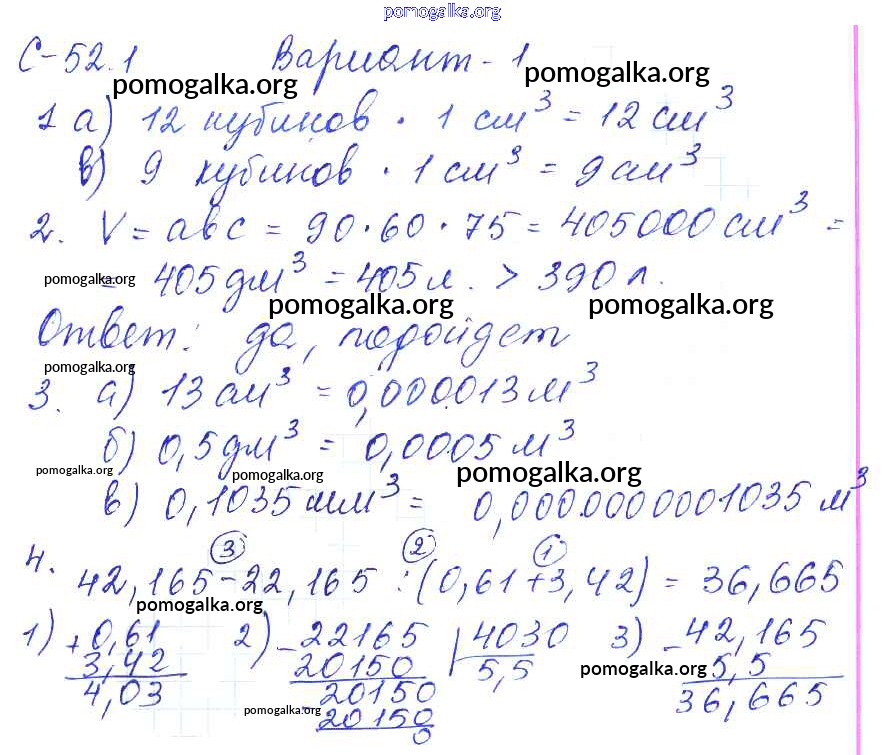 pomogalka.org
С-52.1 Вариант-1
pomogalka.org pomogalka.org
1 а) 12 кубиков · 1 см³ = 12 см³
в) 9 кубиков · 1 см³ = 9 см³
2. V = abc = 90·60·75 = 405000 см³ =
pomogalka.org = 405 дм³ = 405 л. > 390 л.
pomogalka.org pomogalka.org
Ответ: да, подойдет
pomogalka.org
3. а) 13 см³ = 0,000013 м³
б) 0,5 дм³ = 0,0005 м³
pomogalka.org pomogalka.org pomogalka.org
в) 0,1035 мм³ = 0,0000000001035 м³
3 2 1
4. 42,165 - 22,165 : (0,61 + 3,42) = 36,665
pomogalka.org
1) + 0,61 2) - 22165 | 4030 3) - 42,165
3,42 20150 5,5 pomogalka.org 5,5
4,03 - 20150 36,665
pomogalka.org 20150
0